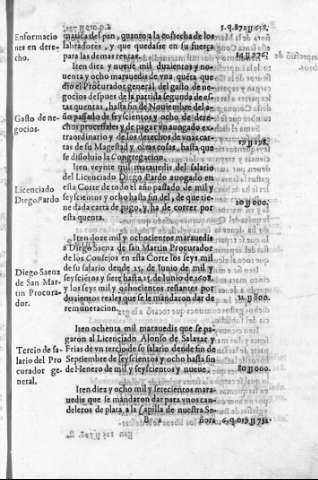 1.q.872jj612.
Enformacio
nes en dere-
cho.
matica del pan, quanto a la cosecha de los
labradores, y que quedase en su fuerza
para las demas rentas.
Iten diez y nueue mil duzientos y no-
uenta y ocho marauedis de vna quenta que
dio el Procurador general, del gasto de ne-
gocios despues de la partida segunda de es-
tas quentas, hasta fin de Nouiembre del a-
ño passado de seyscientos y ocho de dere-
chos processales y de pagar vn auogado ex-
traordinario y de los derechos de vnas car-
tas de su Magestad y otras cosas, hasta que
se dissoluio la Congregacion.
Gasto de ne-
gocios.
19jj298.
Iten veynte mil marauedis del salario
del Licenciado Diego Pardo auogado en
esta Corte de todo el año passado de mil y
seyscientos y ocho hasta fin del, de que tie-
ne dada carta de pago, y ha de correr por
esta quenta.
Licenciado
Diego Pardo
20jj000.
Iten doze mil y ochocientos marauedis
a Diego Saenz de san Martin Procurador
de los Consejos en esta Corte los seys mil
de su salario desde 25. de Iunio de mil y
seyscientos y siete hasta 25. de Iunio de 1608.
y los seys mil y ochocientos restantes por
duzientos reales que se le mandaron dar de
remuneracion.
Diego Saenz
de San Mar-
tin Procura-
dor.
12jj800.
Iten ochenta mil marauedis que se pa-
garon al Licenciado Alonso de Salazar y
Frias de vn tercio de su salario desde fin de
Septiembre de seyscientos y ocho hasta fin
de Henero de mil y seyscientos y nueue.
Tercio de sa-
lario del Pro
curador ge-
neral.
80jj000.
Iten diez y ocho mil y setecientos mar-
auedis que se mandaron dar para vnos can-
deleros de plata, a la Capilla de nuestra Se-
B 2 ñora 6.q.019jj732.